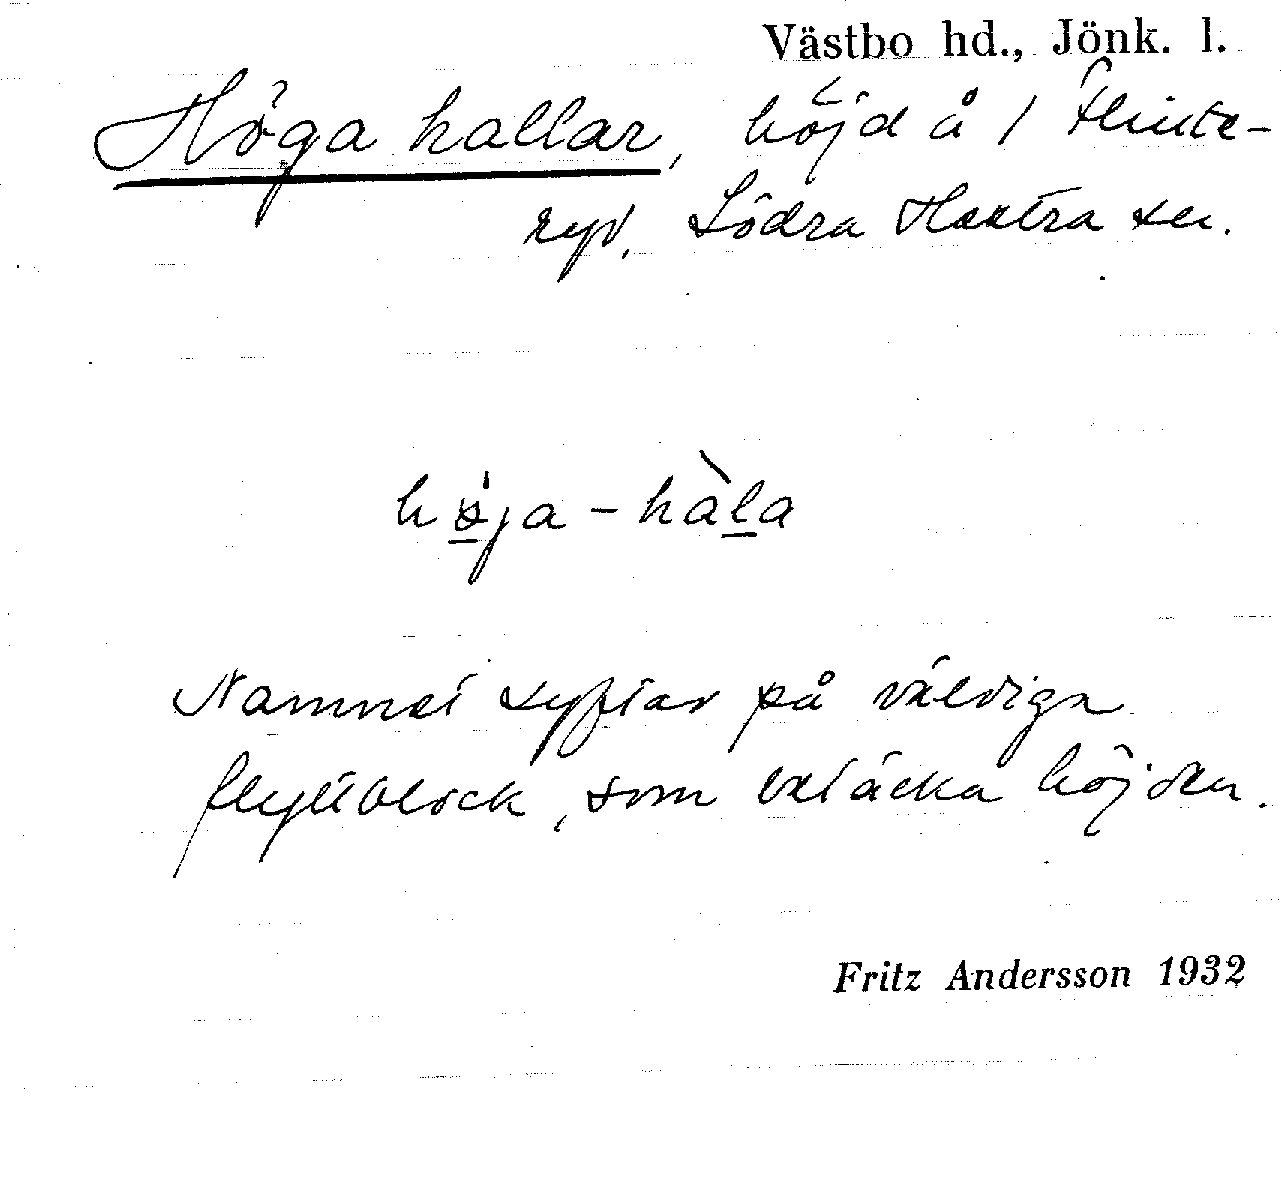 Västbo hd., Jönk. l.
Höga hallar, höjd å 1 Flinte-
ryd, Södra Hestra sn.
høja - hàla
Namnet syftar på väldiga
flyttblock, som betäcka höjden.
Fritz Andersson 1932